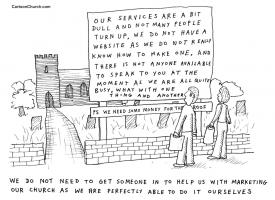 CartoonChurch.com
OUR SERVICES ARE A BIT
DULL AND NOT MANY PEOPLE
TURN UP. WE DO NOT HAVE A
WEBSITE AS WE DO NOT REALLY
KNOW HOW TO MAKE ONE. AND
THERE IS NOT ANYONE AVAILABLE
TO SPEAK TO YOU AT THE
MOMENT AS WE ARE ALL QUITE
BUSY, WHAT WITH ONE
THING AND ANOTHER.
PS WE NEED SOME MONEY FOR THE ROOF
WE DO NOT NEED TO GET SOMEONE IN TO HELP US WITH MARKETING
OUR CHURCH AS WE ARE PERFECTLY ABLE TO DO IT OURSELVES